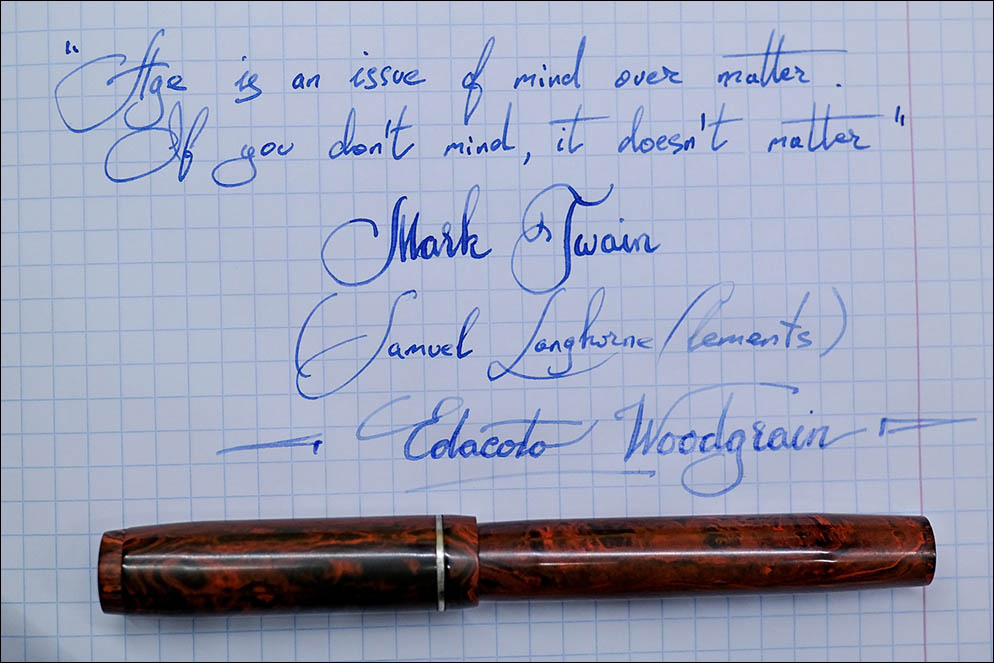 "Age is an issue of mind over matter.
If you don't mind, it doesn't matter"
Mark Twain
(Samuel Langhorne Clements)
Edacoto Woodgrain